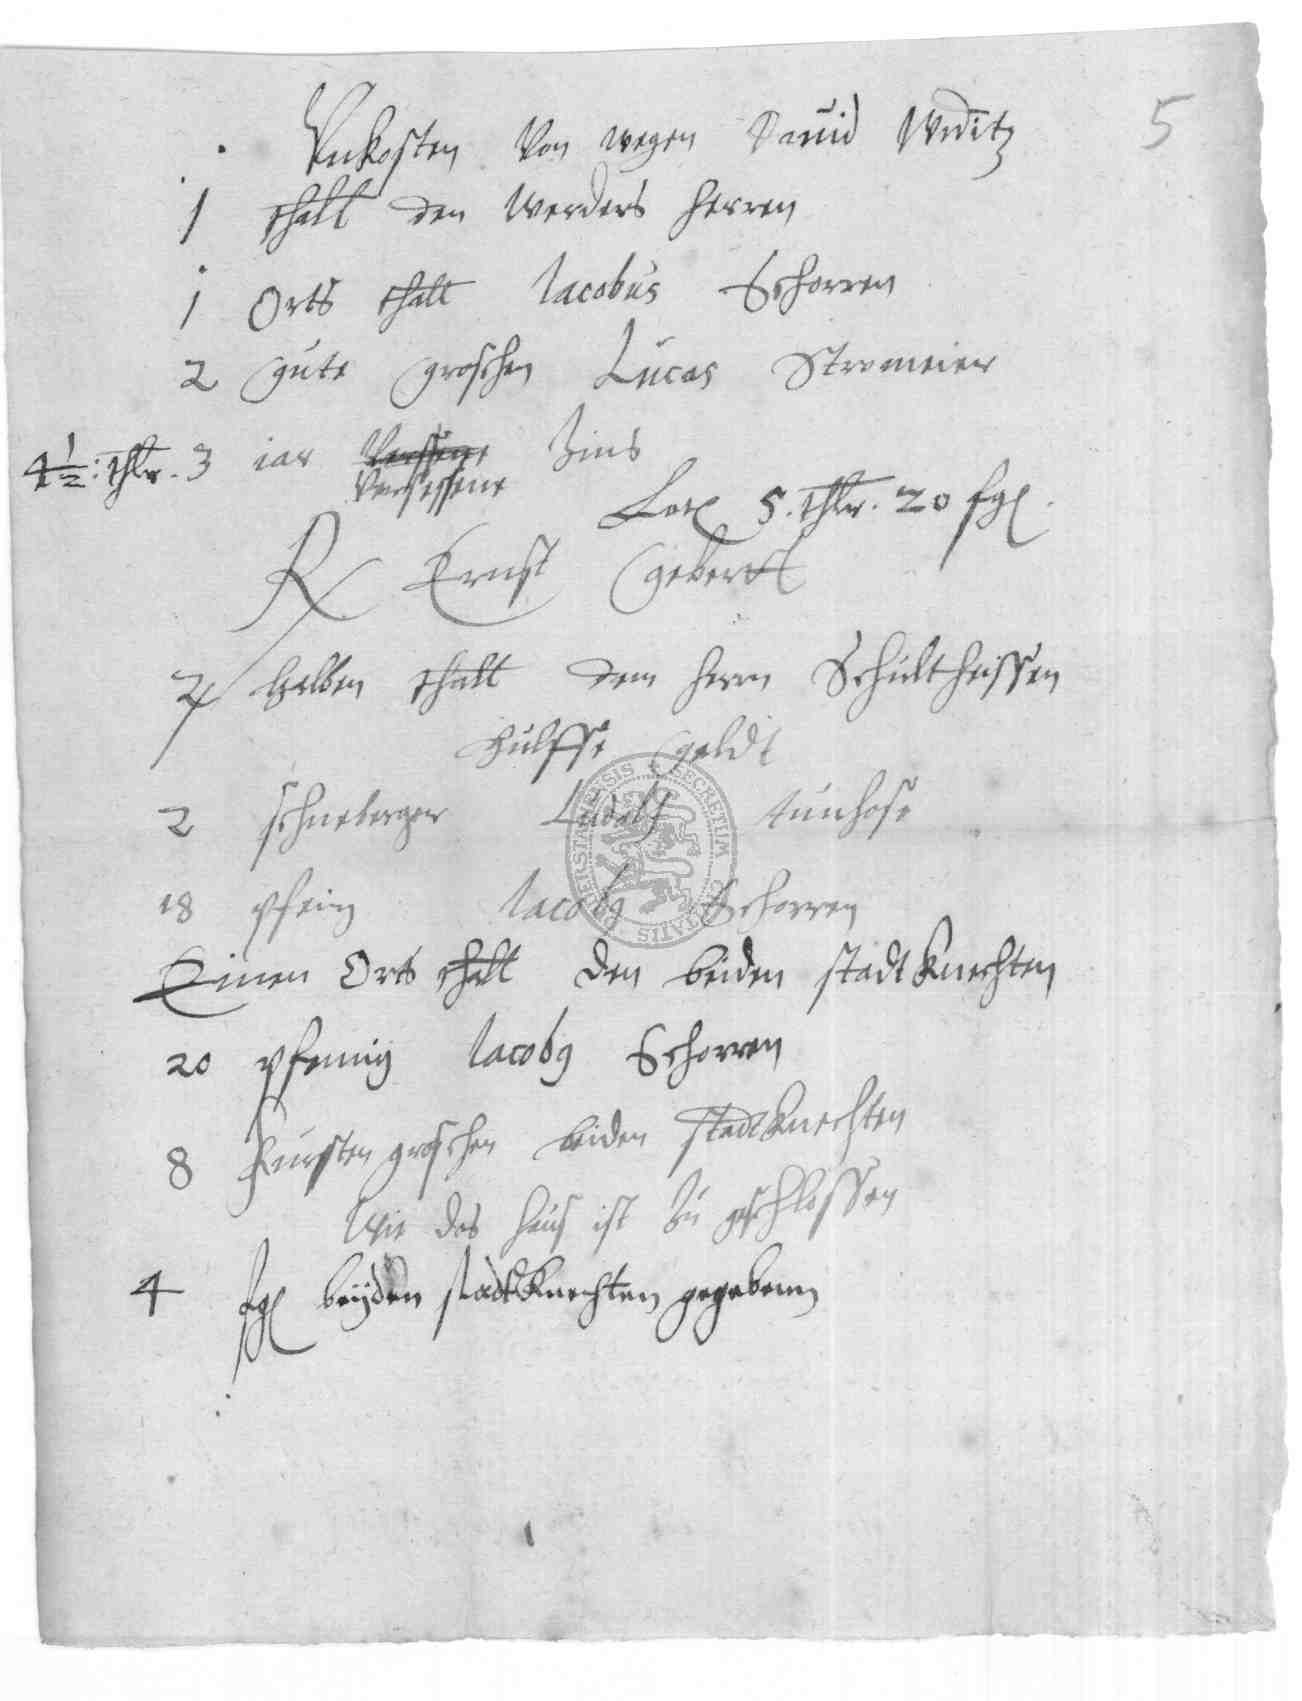 5
Vnkosten Von wegen Dauid
1 thall den werders herren
1 Orts thall Iacobus Schorren
2 gute groschen Lucas Stromeier
4 1/2: thlr. 3 iar Zins
Versessene
5. thlr. 20 fgl.
Ernst Gebert
halben thall dem herrn Schultheissen
hulffe geldt
2 schneberger Ludolf tunhose
18 pfenig Iacoby Schorren
Einen Orts thall den beiden stadt knechten
20 pfennig Iacoby Schorren
8 Fursten groschen beiden stadtknechten
Wie das haus ist zu geschlossen
4 fgl beÿden stadtknechten gegebenn
SECRETUM CIVITATIS